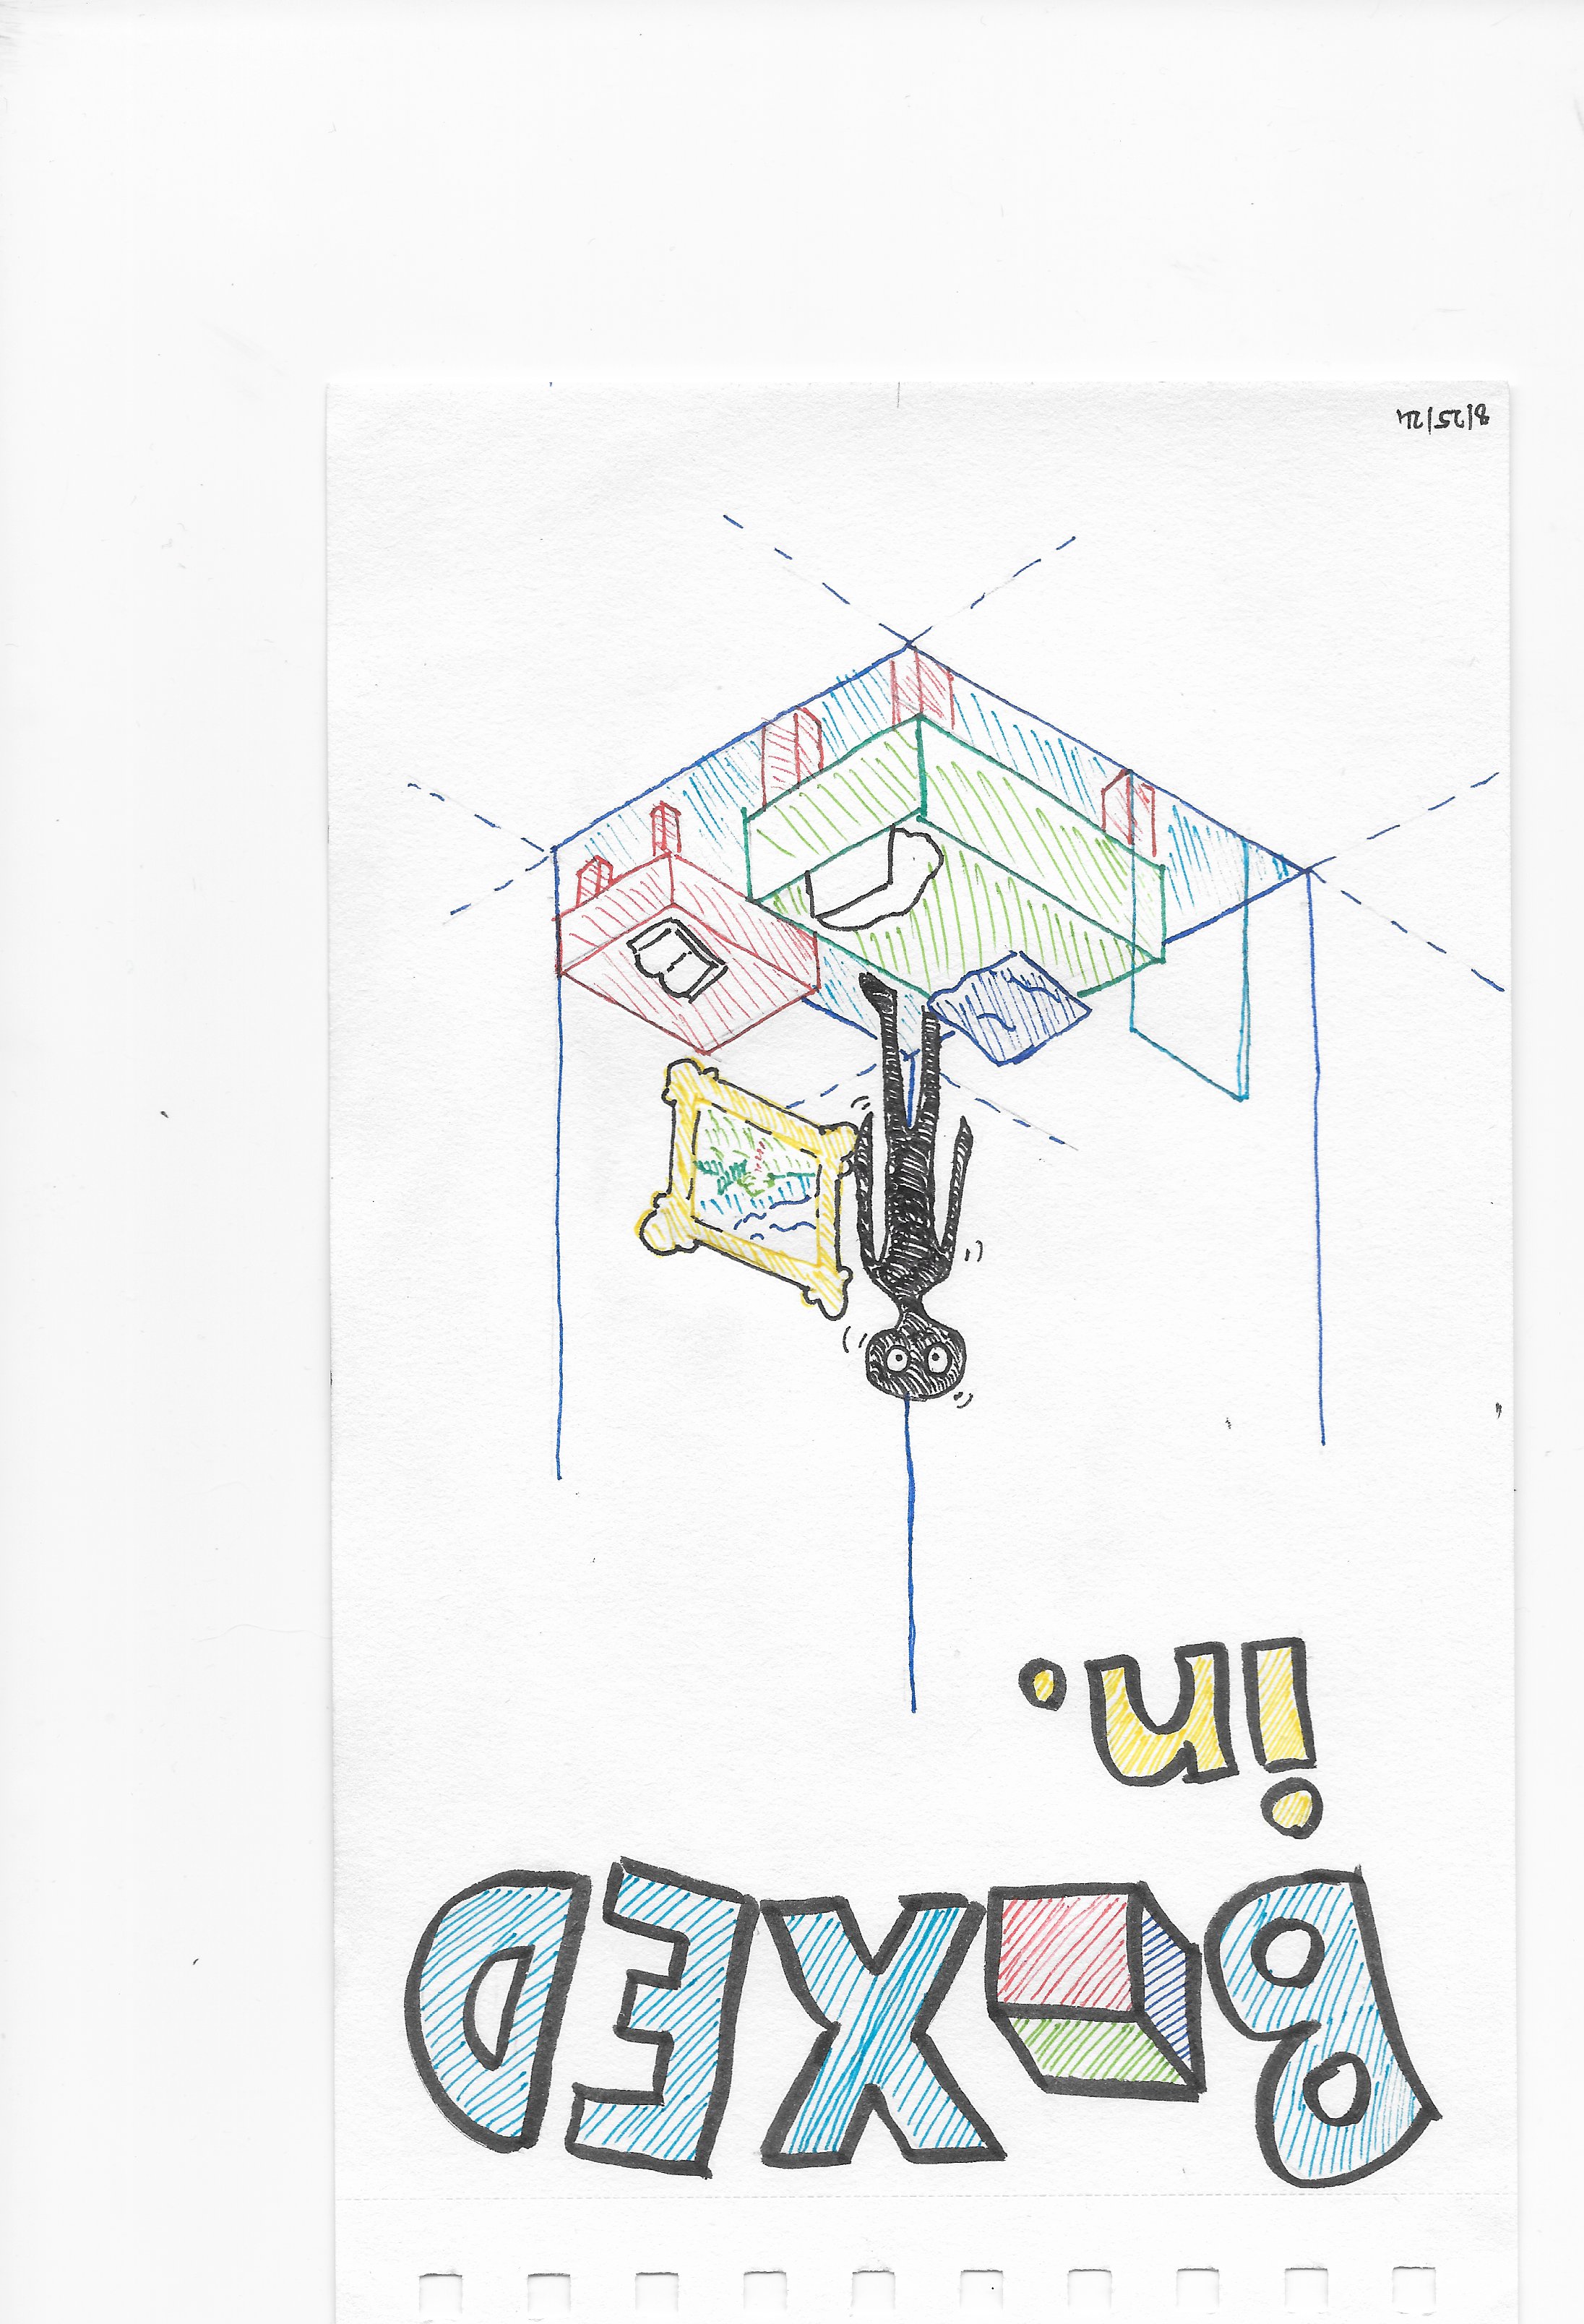 BOXED
in.
8/25/24